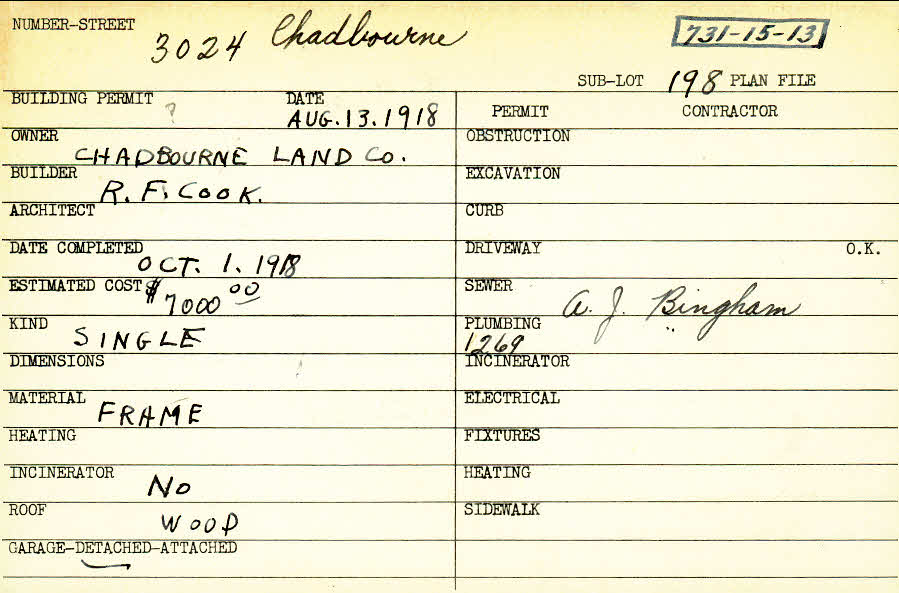 NUMBER-STREET 3024 Chadbourne 731-15-13
SUB-LOT 198 PLAN FILE
BUILDING PERMIT ? DATE AUG. 13. 1918
PERMIT CONTRACTOR
OWNER CHADBOURNE LAND Co.
OBSTRUCTION
BUILDER R. F. COOK.
EXCAVATION
ARCHITECT
CURB
DATE COMPLETED OCT. 1. 1918
DRIVEWAY O.K.
ESTIMATED COST $ 7000 00
SEWER A. J. Bingham
KIND SINGLE
PLUMBING 1269 "
DIMENSIONS
INCINERATOR
MATERIAL FRAME
ELECTRICAL
HEATING
FIXTURES
INCINERATOR No
HEATING
ROOF WOOD
SIDEWALK
GARAGE-DETACHED-ATTACHED